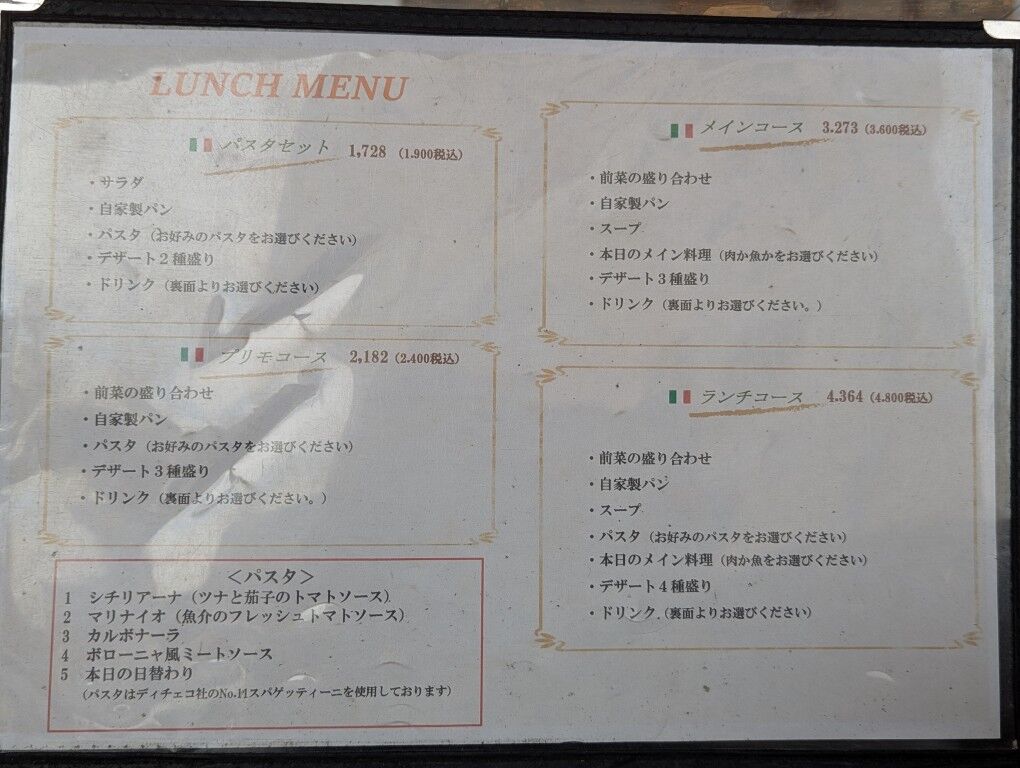 LUNCH MENU
パスタセット 1,728 (1.900税込)
・サラダ
・自家製パン
・パスタ（お好みのパスタをお選びください）
・デザート２種盛り
・ドリンク（裏面よりお選びください）
プリモコース 2,182 (2.400税込)
・前菜の盛り合わせ
・自家製パン
・パスタ（お好みのパスタをお選びください）
・デザート３種盛り
・ドリンク（裏面よりお選びください。）
＜パスタ＞
1 シチリアーナ（ツナと茄子のトマトソース）
2 マリナイオ（魚介のフレッシュトマトソース）
3 カルボナーラ
4 ボローニャ風ミートソース
5 本日の日替わり
（パスタはディチェコ社のNo.11スパゲッティーニを使用しております）
メインコース 3.273 (3.600税込)
・前菜の盛り合わせ
・自家製パン
・スープ
・本日のメイン料理（肉か魚かをお選びください）
・デザート３種盛り
・ドリンク（裏面よりお選びください。）
ランチコース 4.364 (4.800税込)
・前菜の盛り合わせ
・自家製パン
・スープ
・パスタ（お好みのパスタをお選びください）
・本日のメイン料理（肉か魚をお選びください）
・デザート４種盛り
・ドリンク.（裏面よりお選びください）